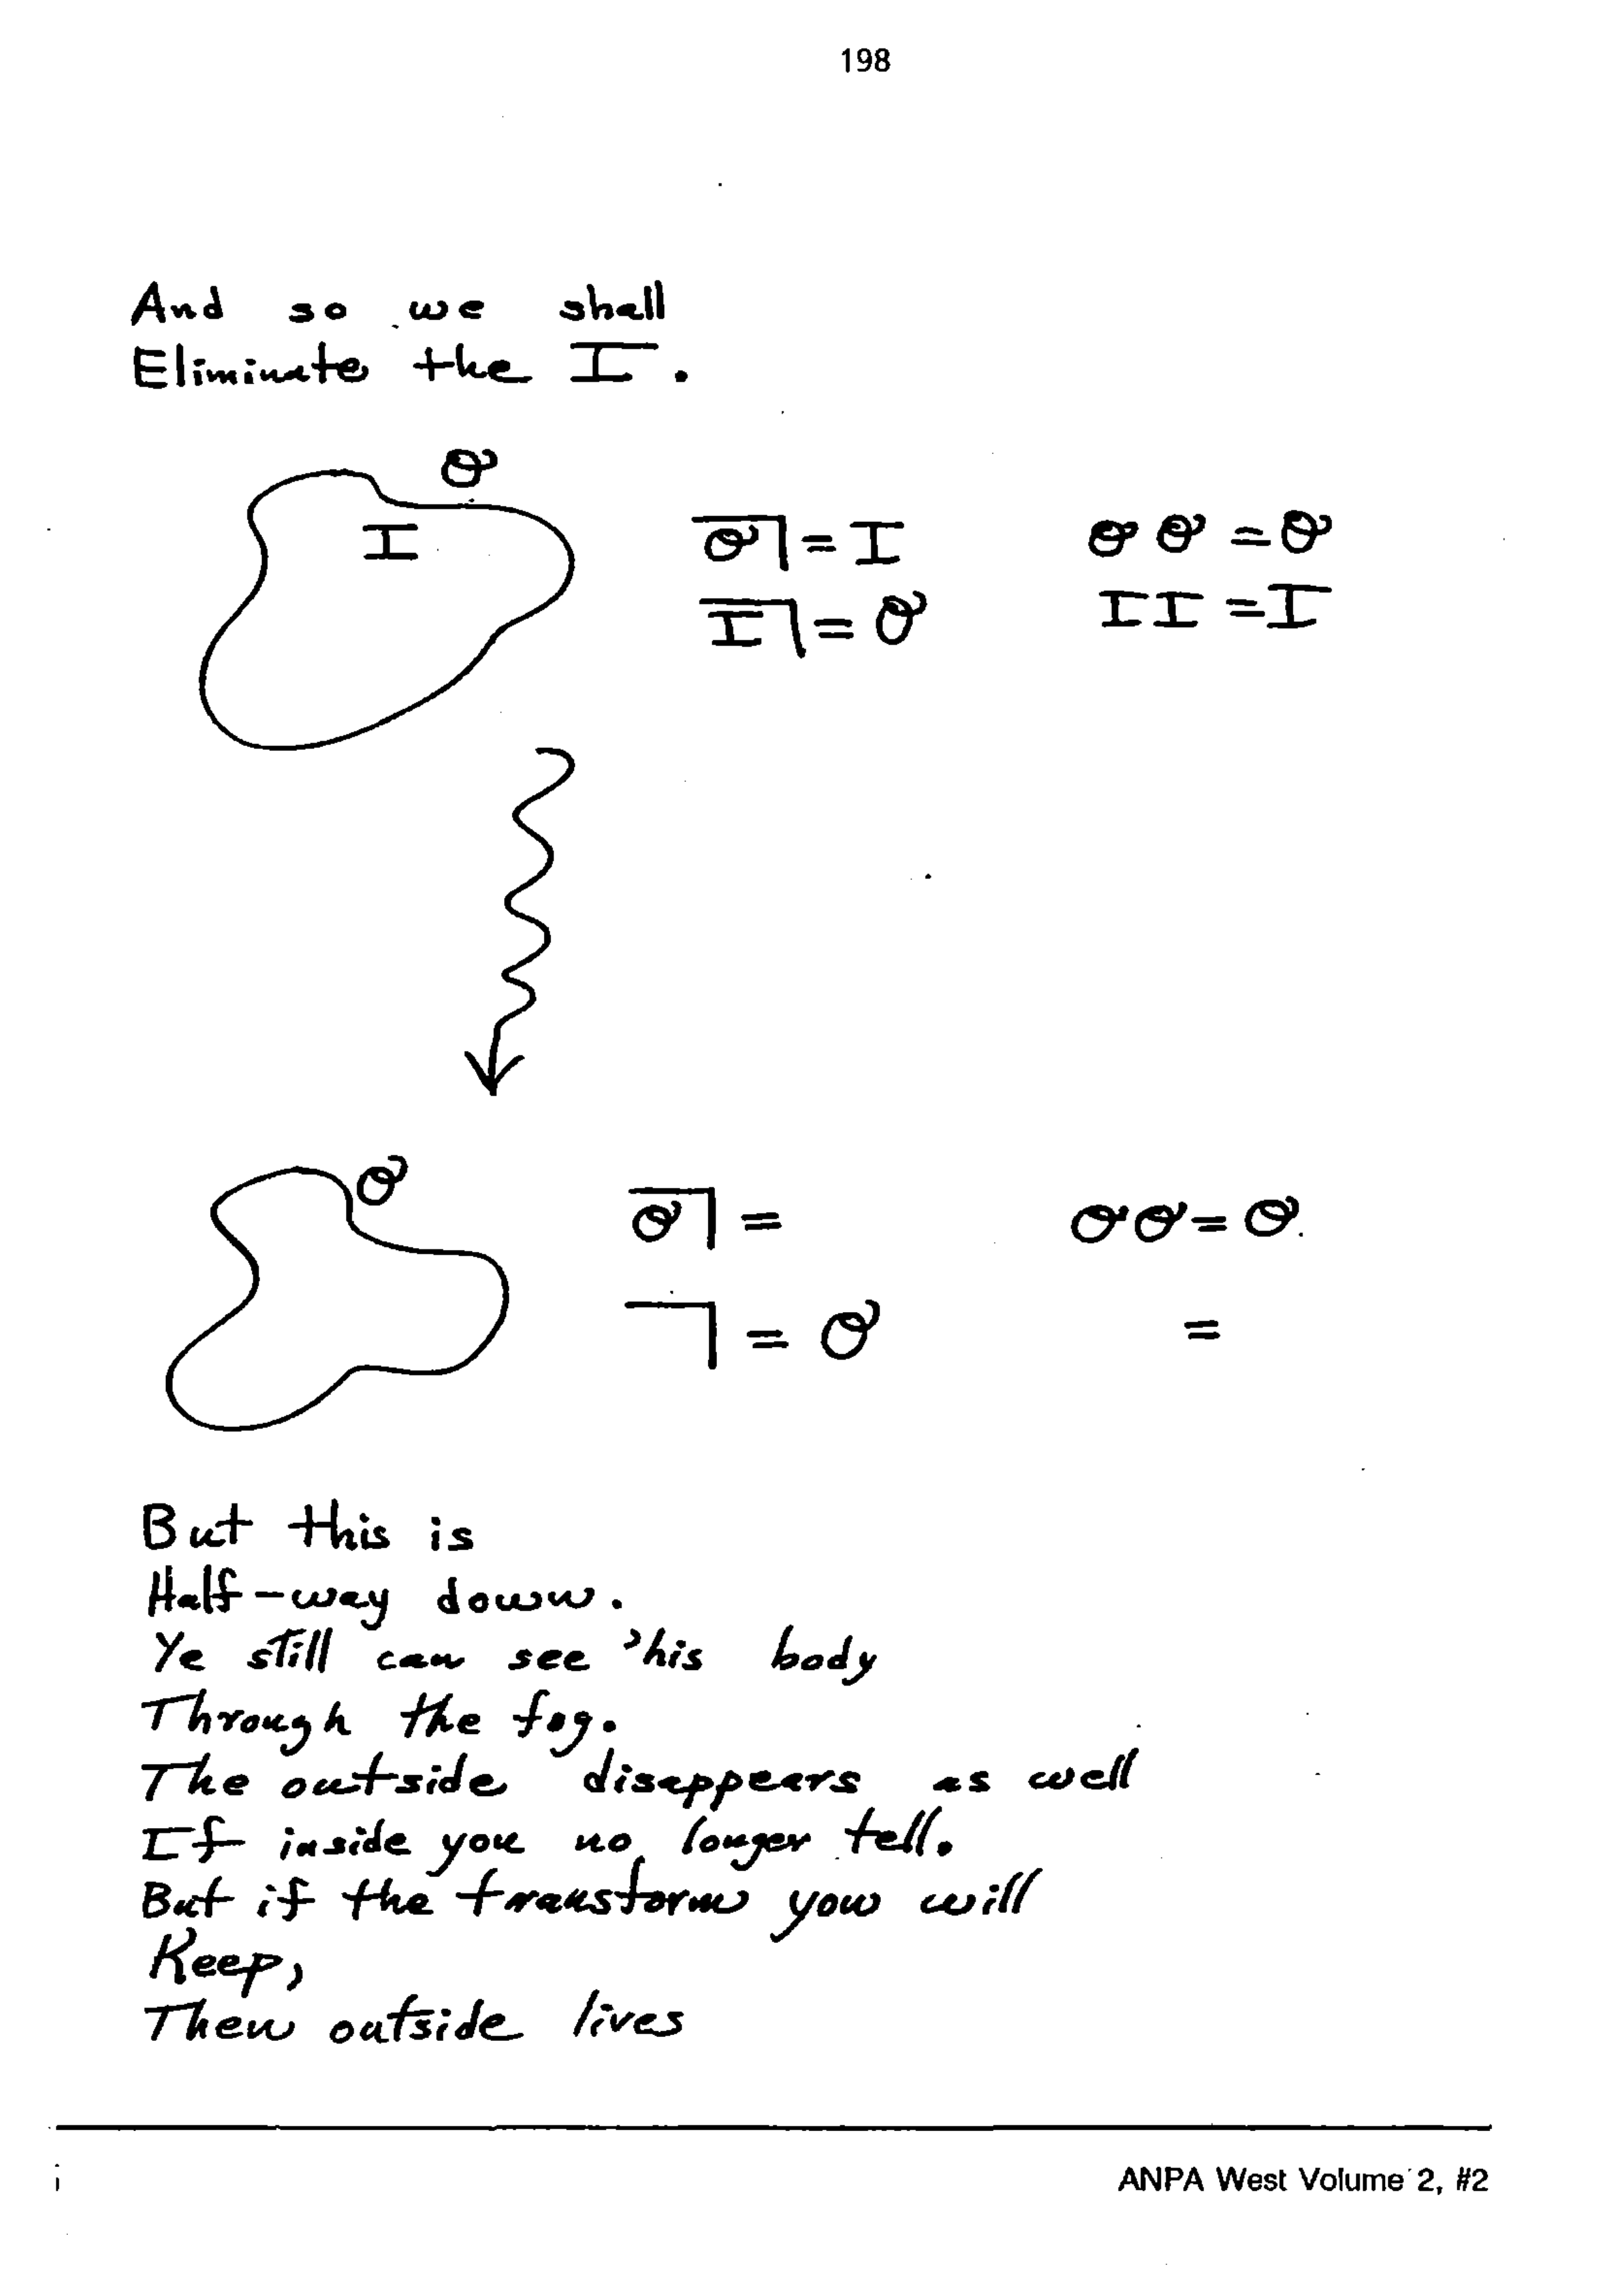 198
And so we shall
Eliminate the I.
O
I
O̅| = I     O O = O
I̅| = O     I I = I
O
O̅| =     O O = O.
 ̅| = O     =
But this is
Half-way down.
Ye still can see 'his body
Through the fog.
The outside disappears as well
If inside you no longer tell.
But if the transform you will
Keep,
Then outside lives
ANPA West Volume 2, #2